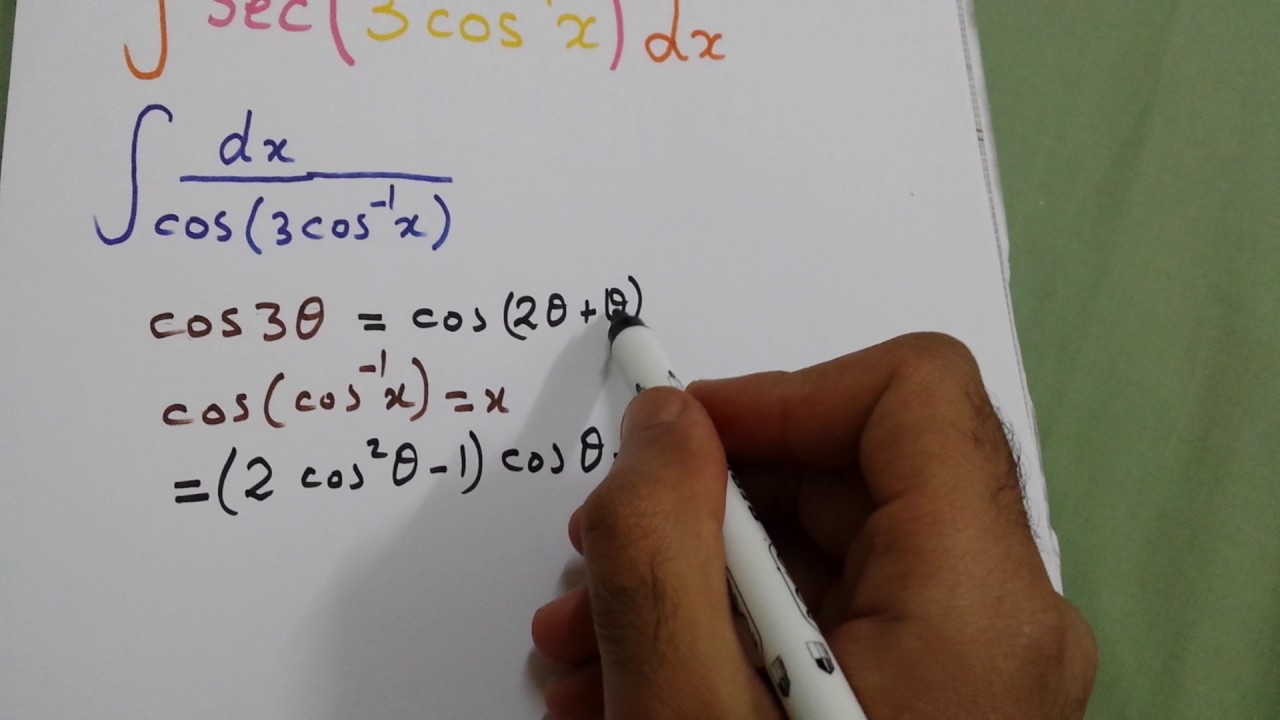 ∫ sec(3cos⁻¹x) dx
∫ dx
cos(3cos⁻¹x)
cos3θ = cos(2θ+θ)
cos(cos⁻¹x)=x
=(2 cos²θ-1) cosθ